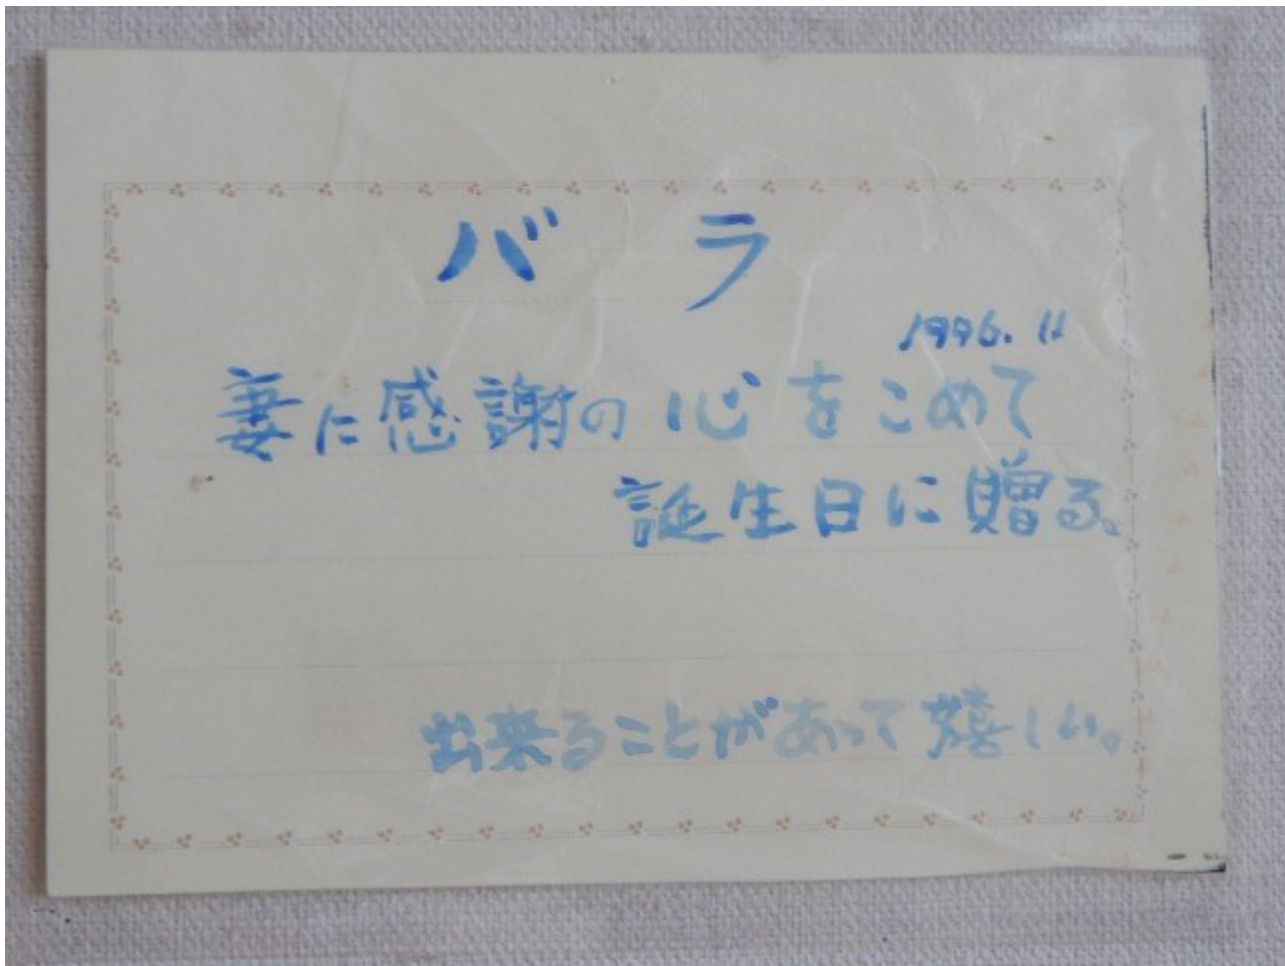 バラ
1996.11
妻に感謝の心をこめて
誕生日に贈る。
出来ることがあって嬉しい。